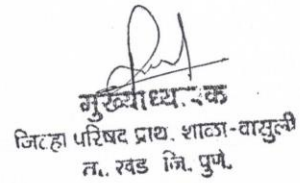 मुख्याध्यापक
जिल्हा परिषद प्राथ. शाळा-वासुली
ता. खेड जि. पुणे.